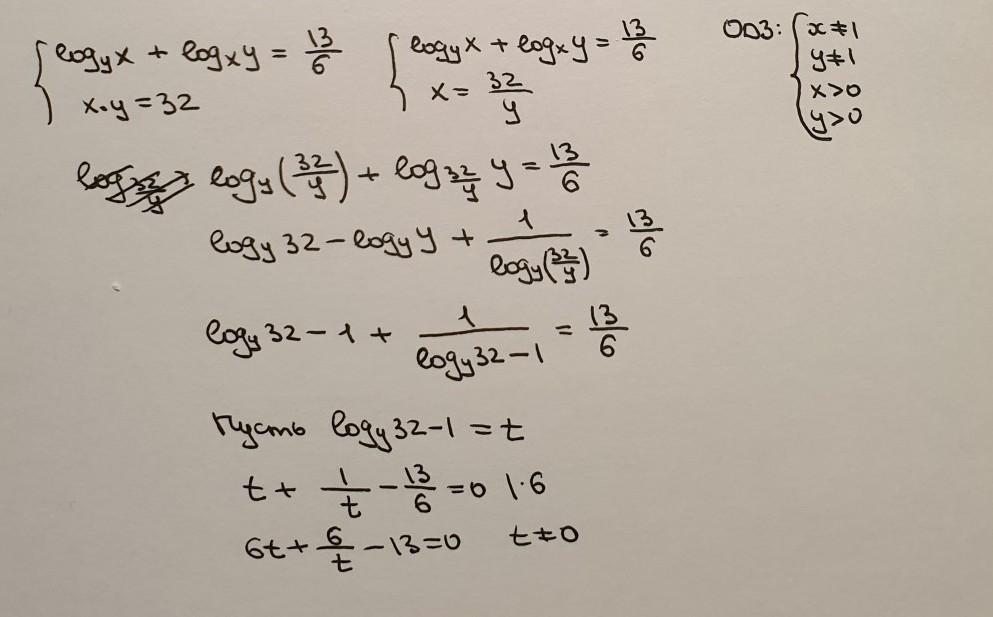 { log_y x + log_x y = 13/6   { log_y x + log_x y = 13/6   ОДЗ: { x≠1
x·y = 32   x = 32/y   y≠1
x>0
y>0
log_y(32/y) + log_{32/y} y = 13/6
log_y 32 - log_y y + 1/log_y(32/y) = 13/6
log_y 32 - 1 + 1/(log_y 32 - 1) = 13/6
Пусть log_y 32 - 1 = t
t + 1/t - 13/6 = 0 |·6
6t + 6/t - 13 = 0   t≠0